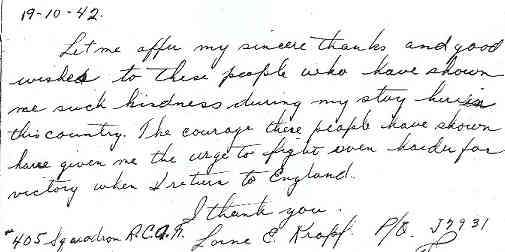 19-10-42.
Let me offer my sincere thanks and good
wishes to these people who have shown
me such kindness during my stay here in
this country. The courage these people have shown
have given me the urge to fight even harder for
victory when I return to England.
I thank you.
#405 Squadron R.C.A.F. Lorne E. Kropf. P/O. J7931